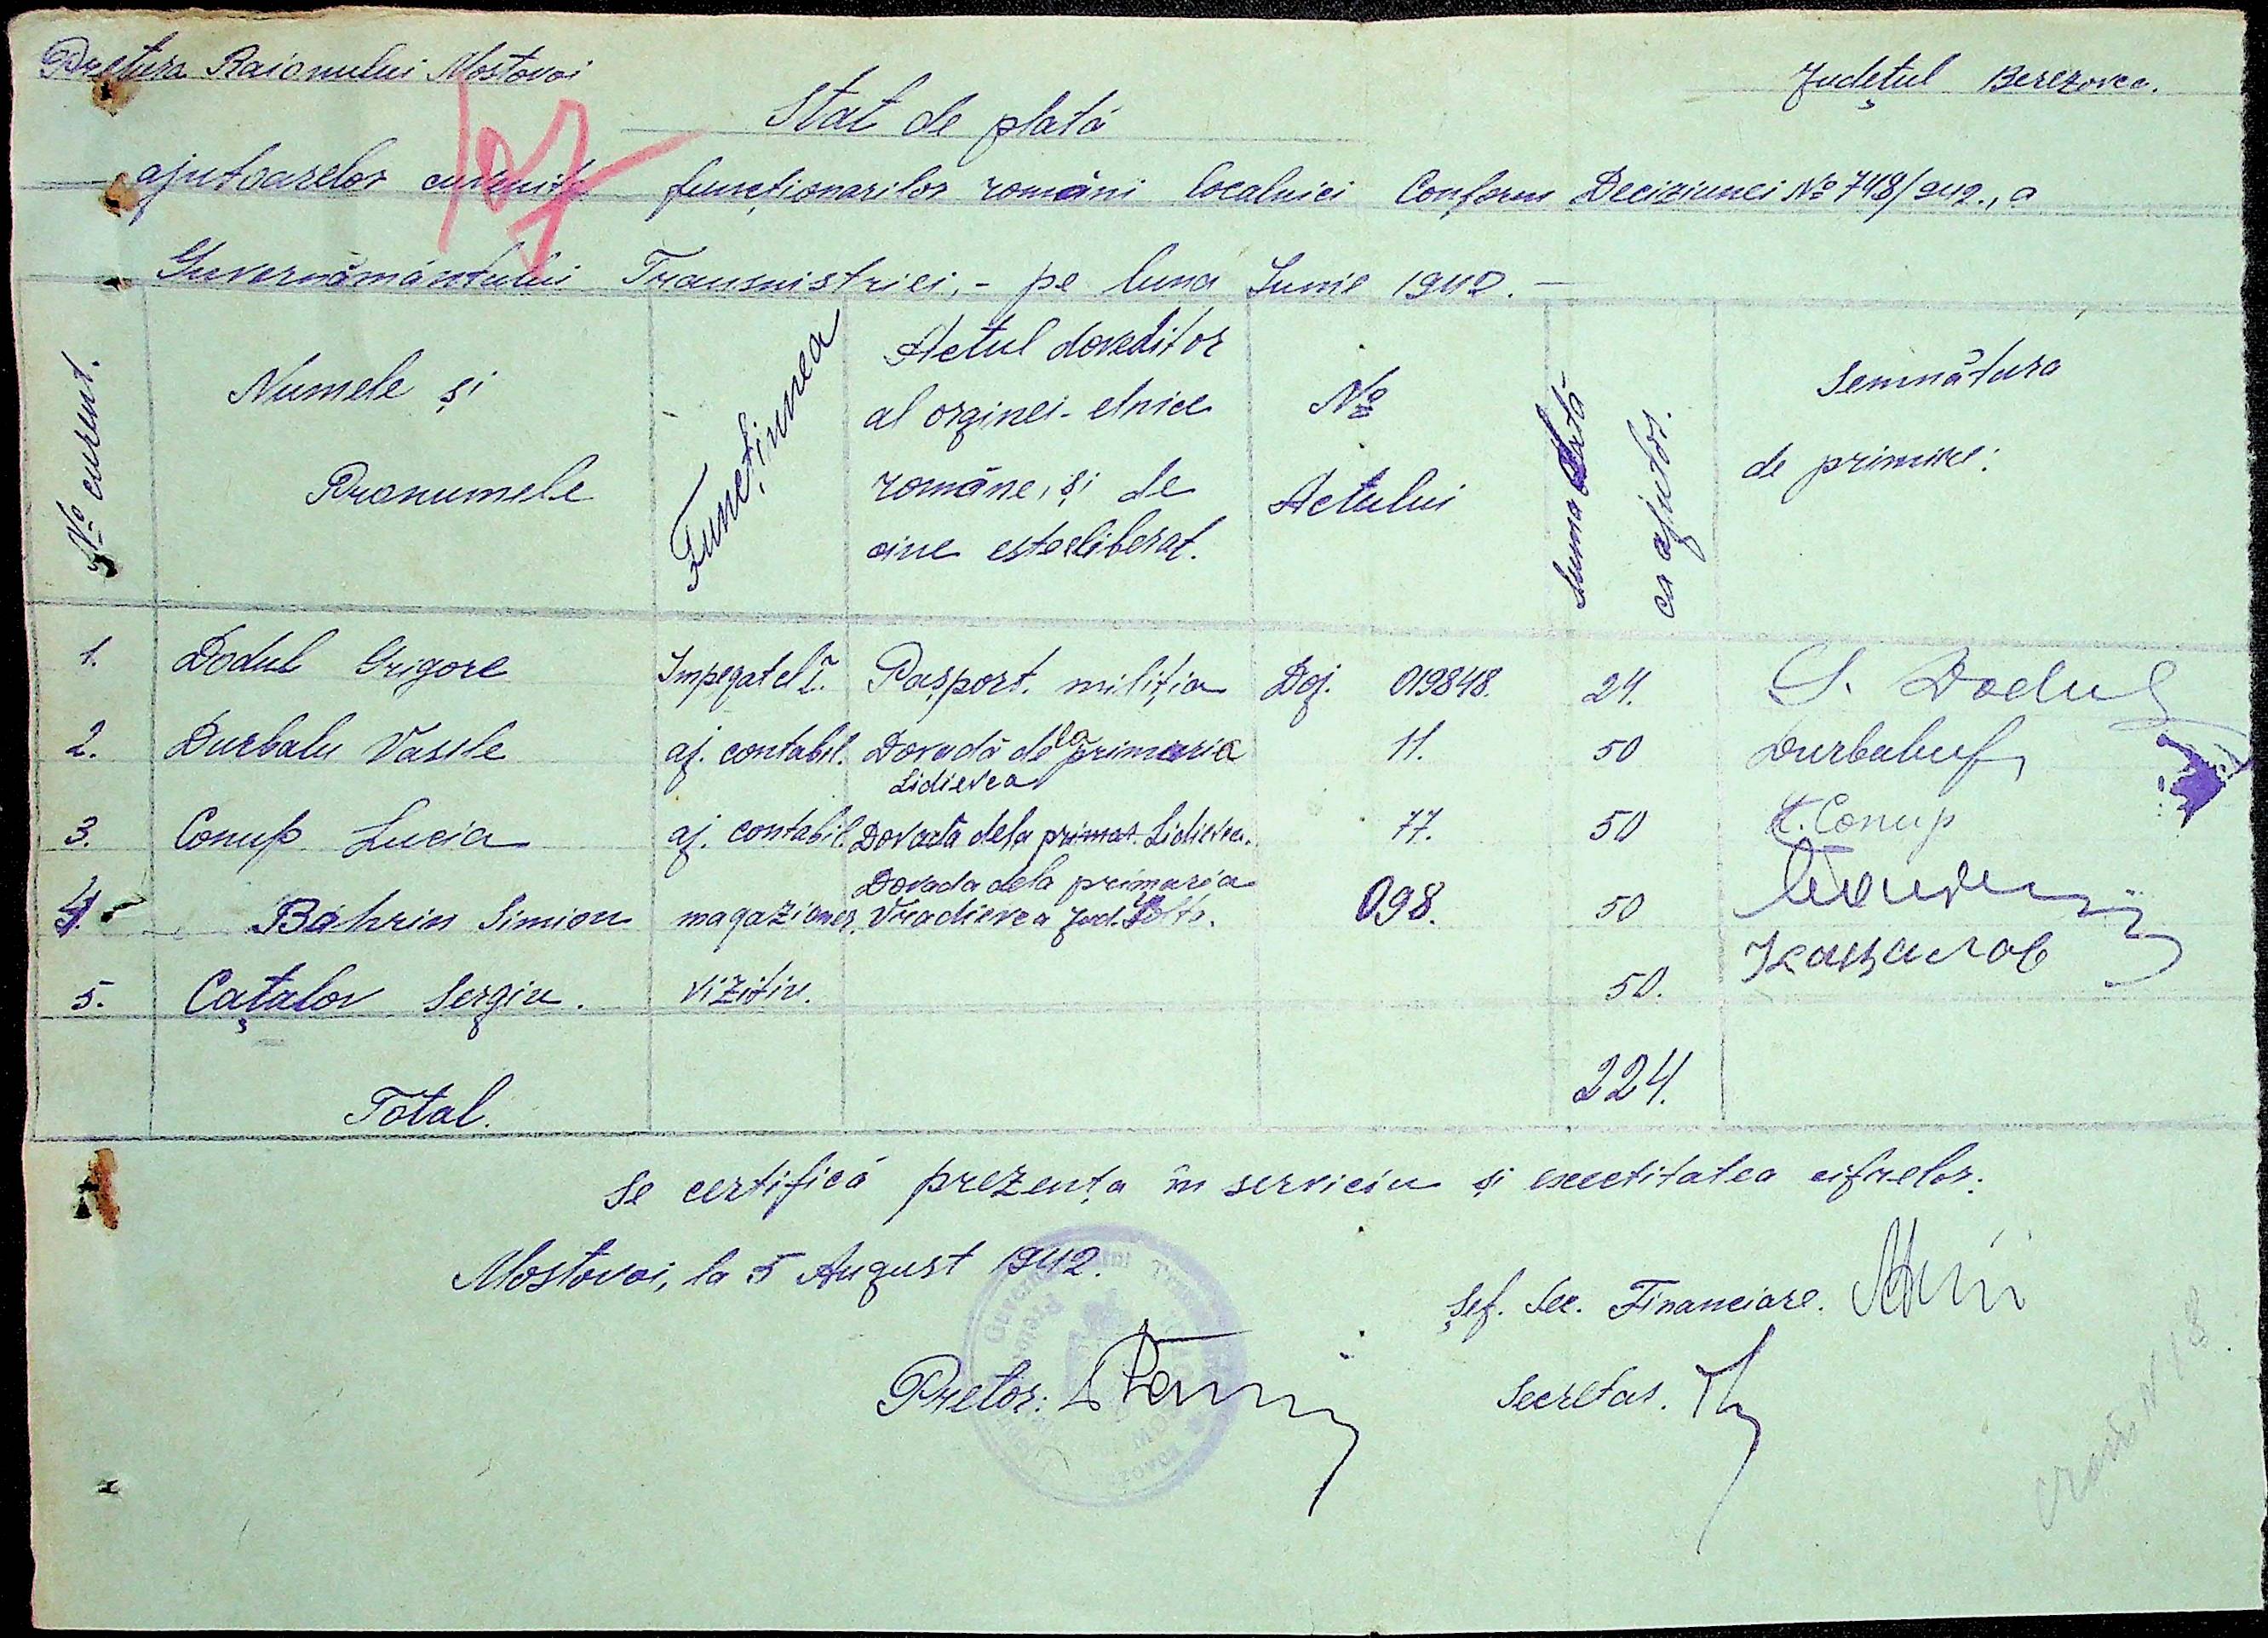 Pretura Raionului Mostovoi
Județul Berezovca.
107
Stat de plată
ajutoarelor cuvenite funcționarilor români localnici Conform Deciziunei № 748/942., a
Guvernământului Transnistriei, - pe luna Iunie 1942. -
№ curent.
Numele și
Pronumele
Funcțiunea
Actul doveditor
al orginei - etnice
române, și de
cine este eliberat.
№
Actului
Suma dată
ca ajutor.
Semnătura
de primire:
1. Dodul Grigore Impegatel I. Pașport. miliția Doj. 019848. 24. G. Dodul
2. Durbalu Vasile aj. contabil. Dovadă de la primaria 11. 50 Durbalu
Lidievca
3. Conup Lucia aj. contabil. Dovada dela primar. Lidievca. 77. 50 L. Conup
Dovada dela primaria
4. Bahrin Simion magazioner. Vradievca Jud. Golta. 098. 50
5. Cațalov Sergiu. vizitiu. 50. Кацалов
Total. 224.
Se certifică prezența în serviciu și exectitatea cifrelor.
Mostovoi, la 5 August 1942.
Șef. Sec. Financiare.
Pretor:
Secretar.